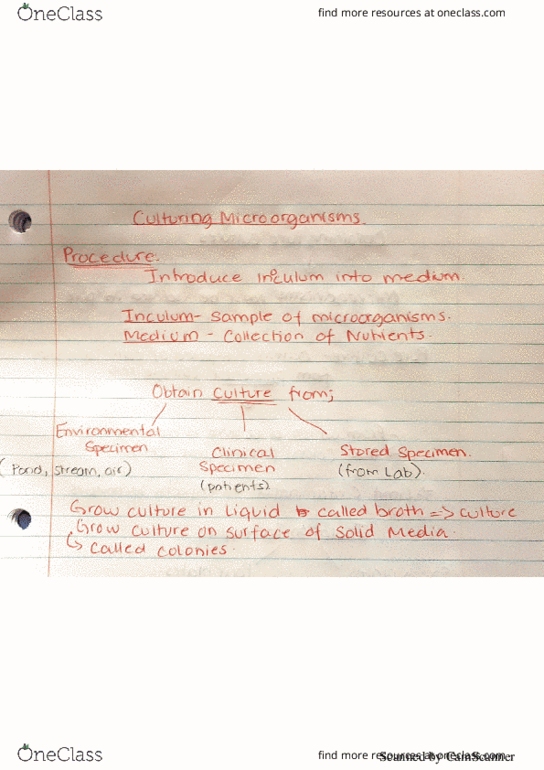 OneClass
find more resources at oneclass.com
Culturing Microorganisms.
Procedure.
Introduce inoculum into medium.
Inculum- Sample of microorganisms.
Medium - Collection of Nutrients.
Obtain culture from;
Environmental Specimen
(Pond, stream, air)
Clinical Specimen
(patients)
Stored Specimen.
(from Lab).
Grow culture in Liquid called broth => culture
Grow culture on surface of solid Media.
↳ called colonies.
OneClass
find more resources at oneclass.com
Scanned by CamScanner